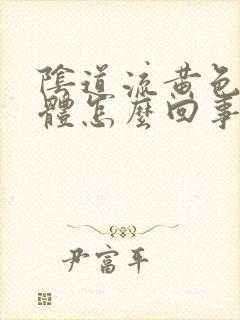 陰道流黃色
體怎麼回事
尹富平